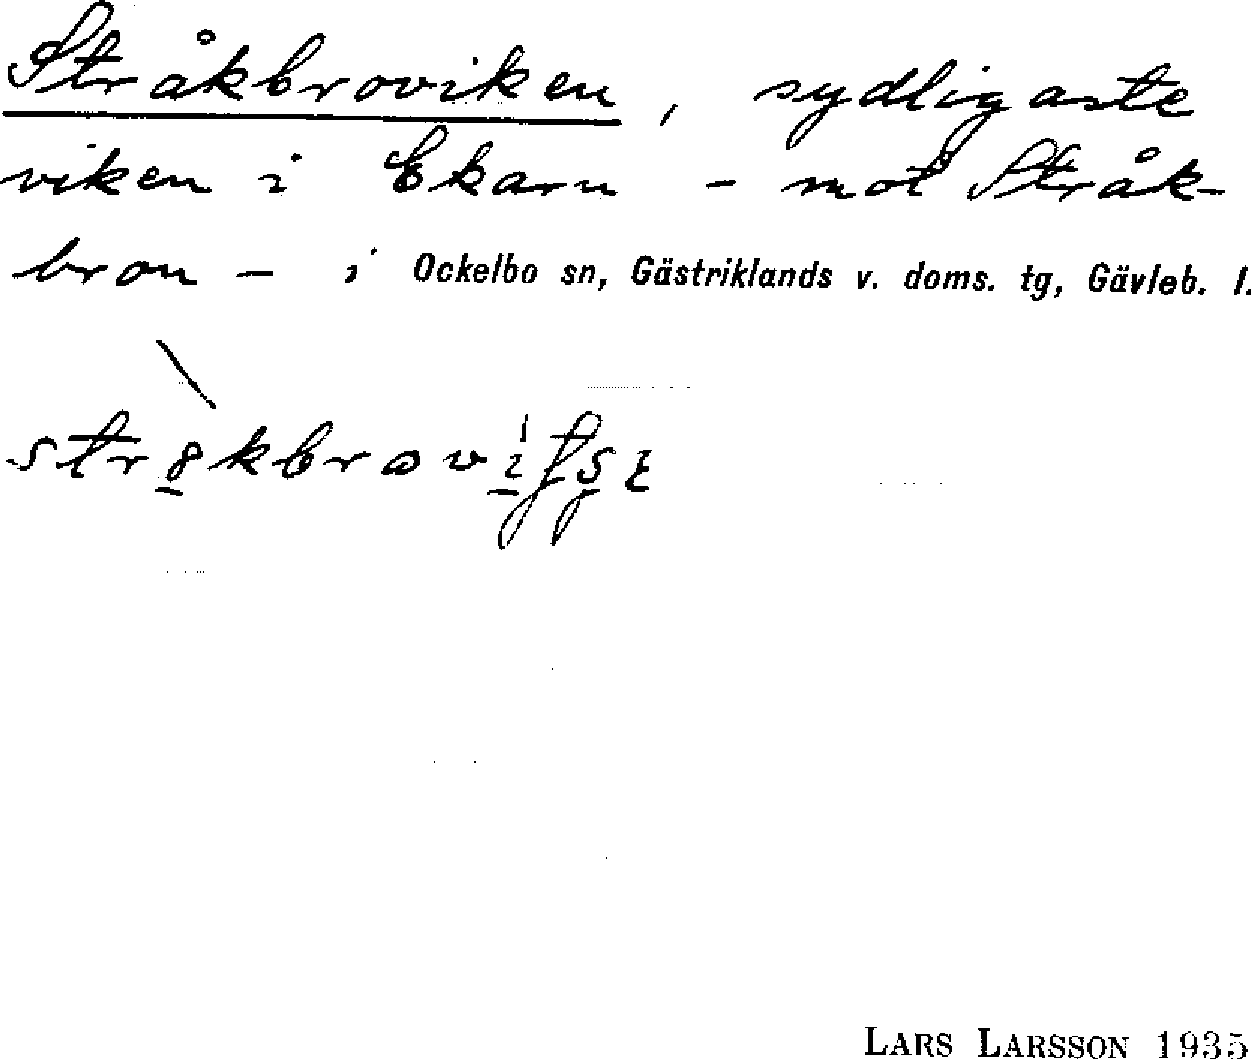 Stråkbroviken, sydligaste
viken i Ekarn - mot Stråk-
bron - i Ockelbo sn, Gästriklands v. doms. tg, Gävleb. l.
LARS LARSSON 1935